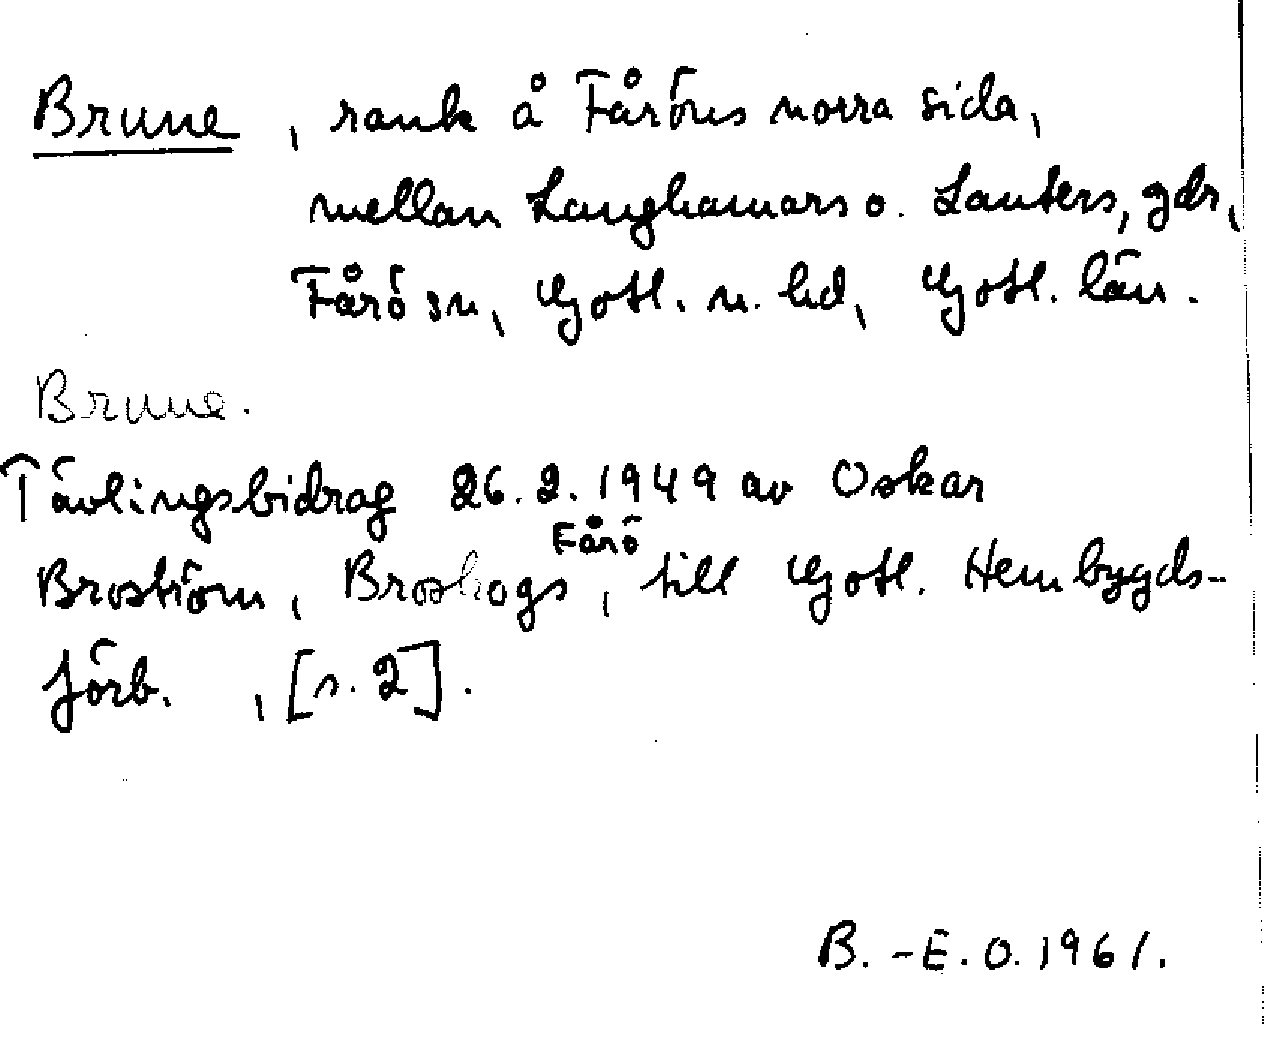 Brune, rauk å Fåröns norra sida,
mellan Langhamars o. Lauters, gdr,
Fårö sn, Gotl. n. hd, Gotl. län.
Brune.
Tävlingsbidrag 26.2.1949 av Oskar
Broström, Broskogs, Fårö, till Gotl. Hembygds-
förb. , [s. 2].
B.-E. O. 1961.